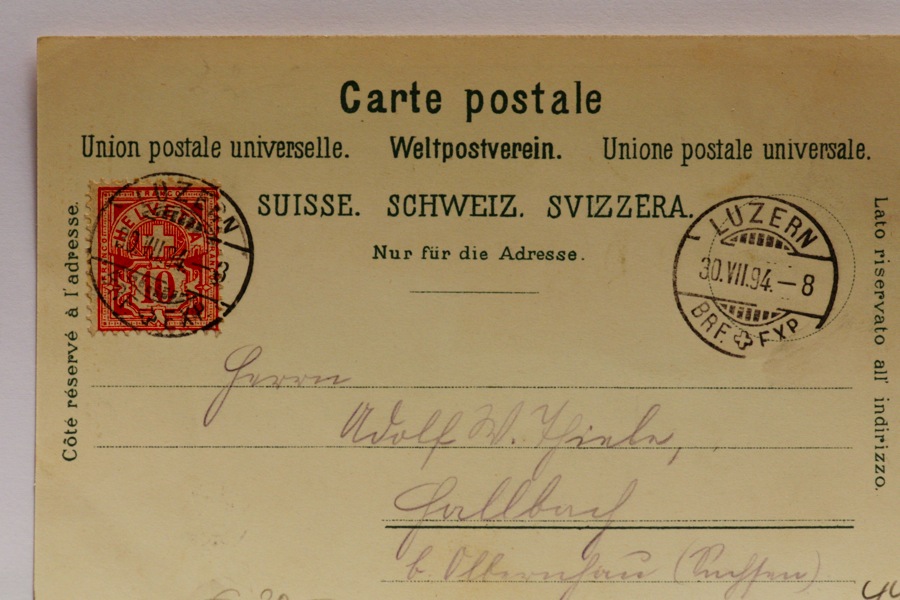 Carte postale
Union postale universelle. Weltpostverein. Unione postale universale.
SUISSE. SCHWEIZ. SVIZZERA.
Nur für die Adresse.
Côté réservé à l'adresse.
Lato riservato all' indirizzo.
FRANCO
HELVETIA
10
LUZERN
LUZERN
30.VII.94.–8
BRF. EXP.
Herrn
Adolf W. Thiele,
Hallbach
b. Olbernhau (Sachsen)